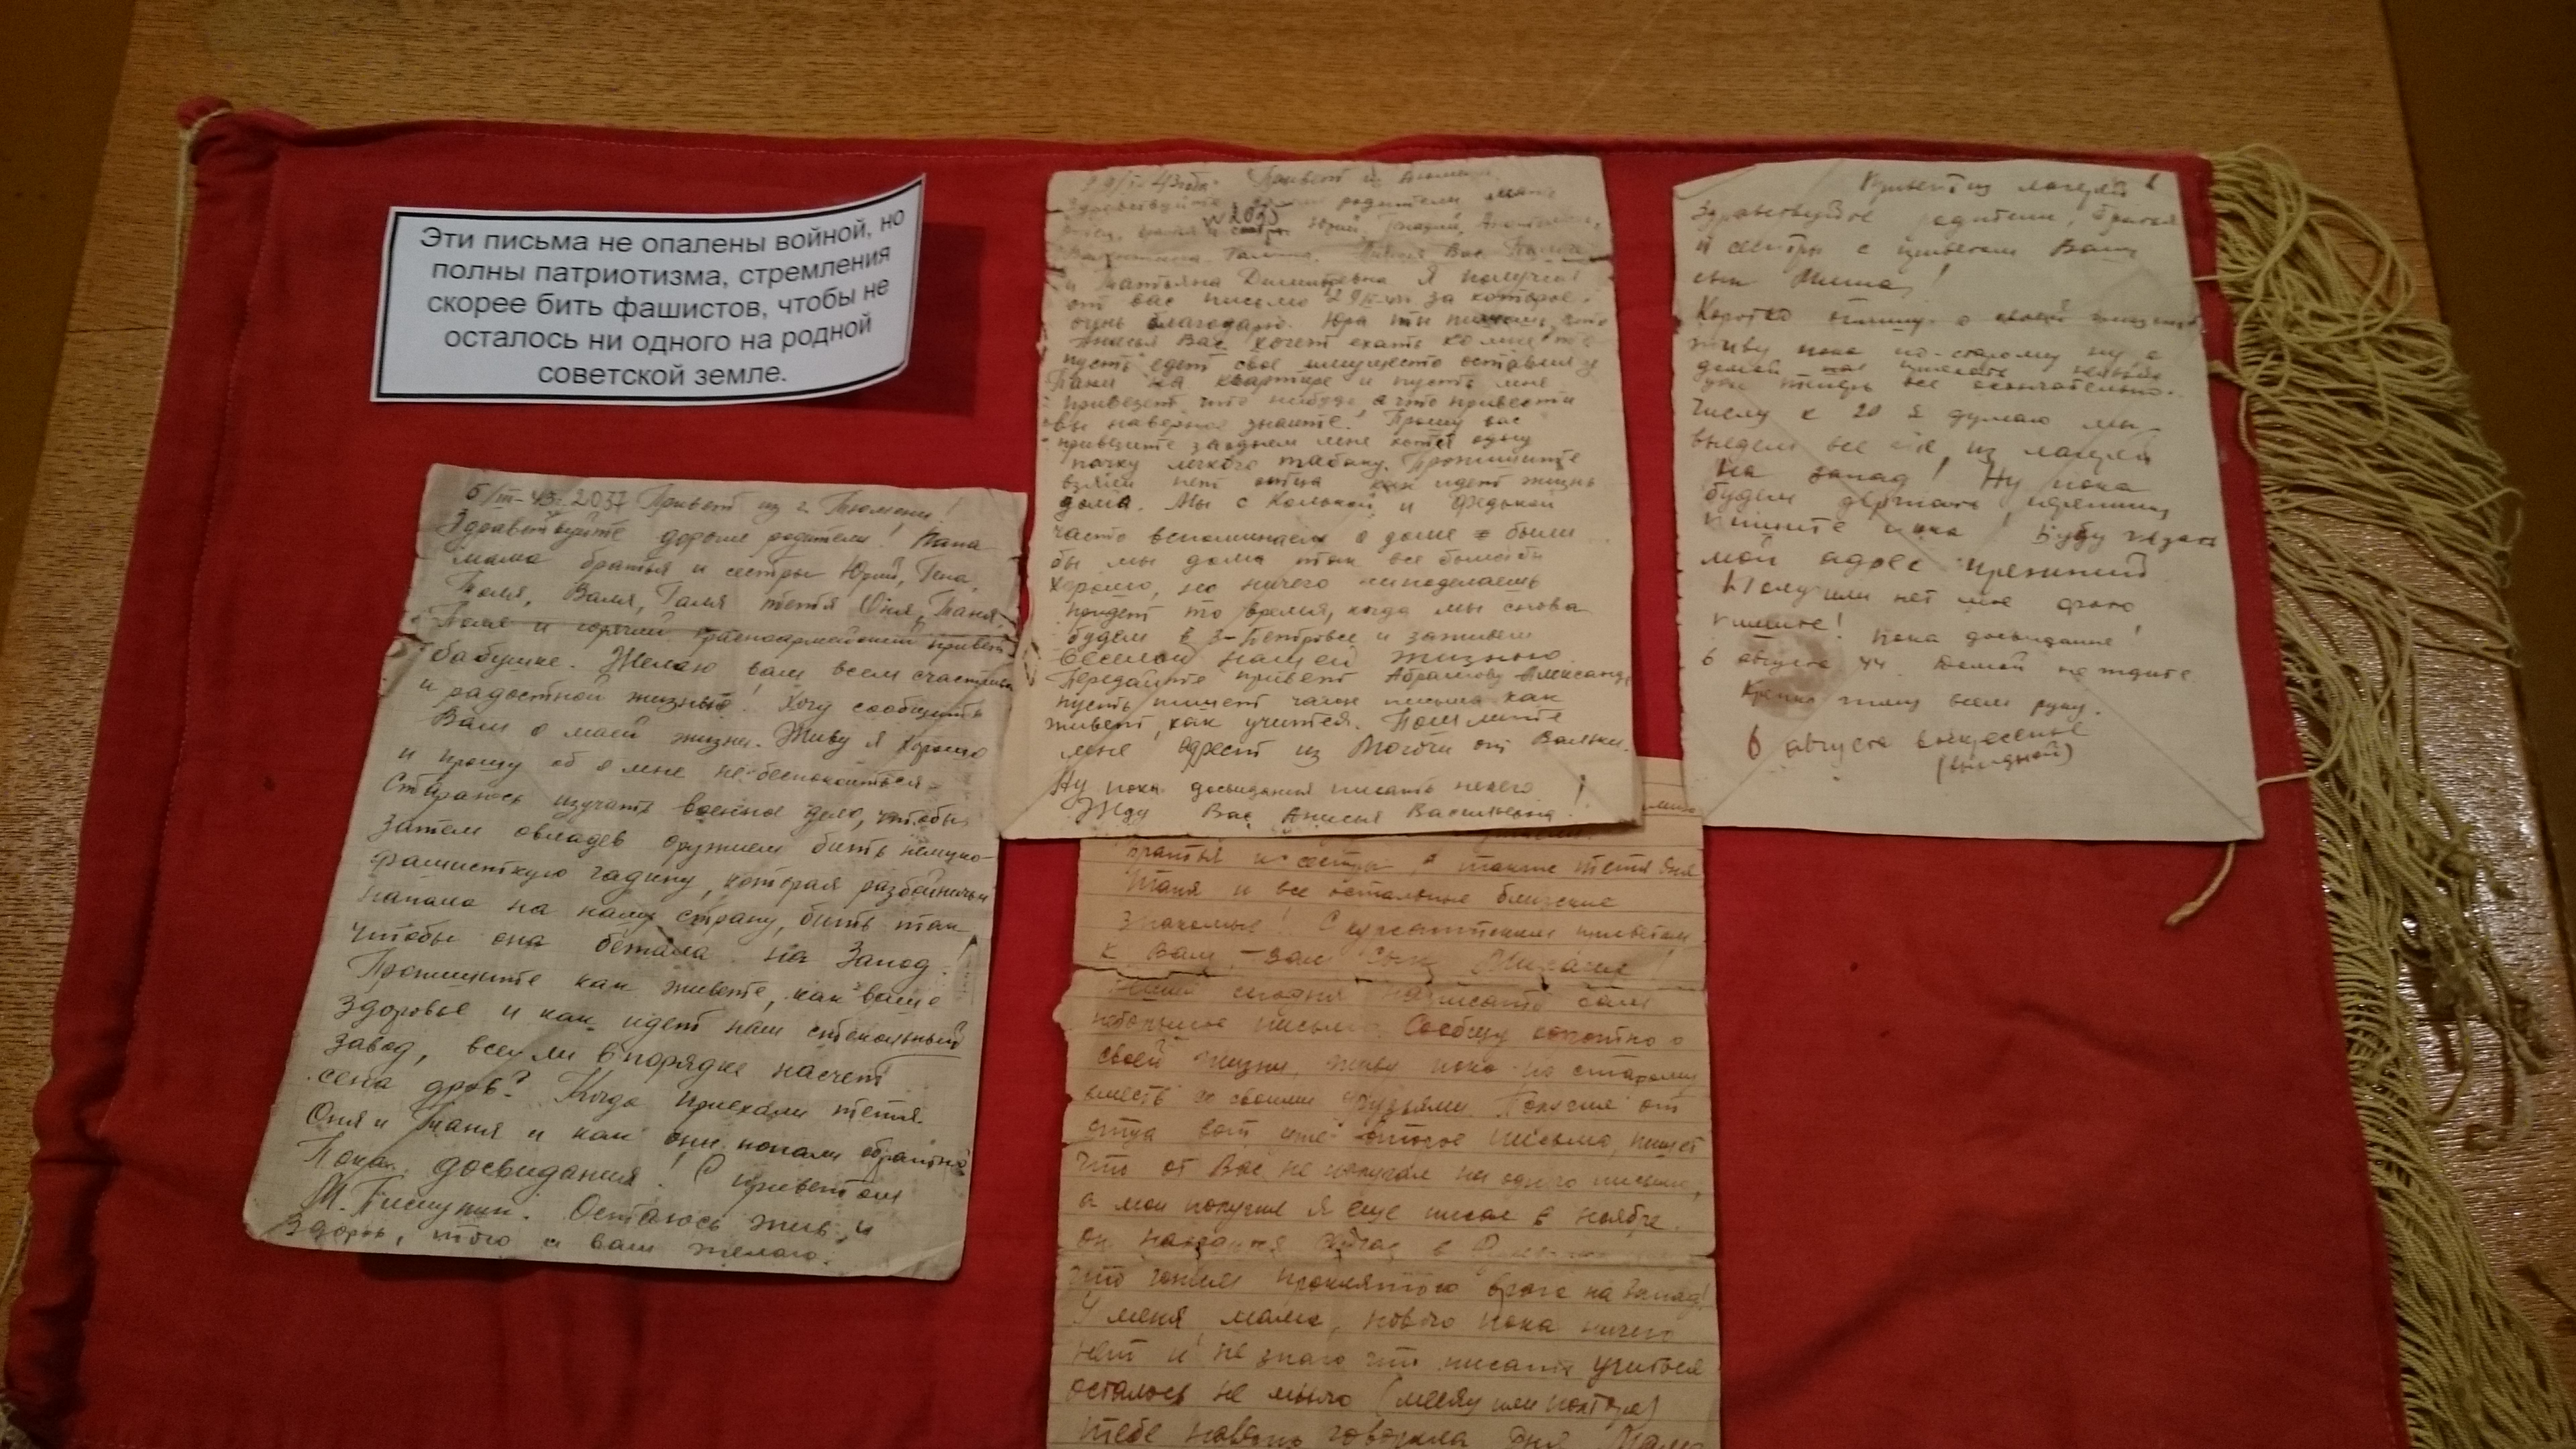 Эти письма не опалены войной, но
полны патриотизма, стремления
скорее бить фашистов, чтобы не
осталось ни одного на родной
советской земле.
5/III-43г. 2037 Привет из г. Тюмени!
Здравствуйте дорогие родители! Папа
мама братья и сестры Юрий, Гена,
Толя, Валя, Галя тетя Оня, Таня,
Поля и горячий красноармейский привет
бабушке. Желаю вам всем счастливой
и радостной жизнью! Хочу сообщить
Вам о моей жизни. Живу я хорошо
и прошу об о мне не беспокоиться.
Стараюсь изучать военное дело, чтобы
затем овладев оружием бить немецко-
фашисткую гадину, которая разбойничьи
напала на нашу страну, бить так,
чтобы она бежала на Запад!
Пропишите как живете, как ваше
здоровье и как идет наш стекольный
завод, все ли в порядке насчет
сена дров? Когда приехали тетя
Оня и Таня и как они попали обратно
Пока досвидания! С приветом
М. Пискунин. Остаюсь жив и
здоров, того и вам желаю.
43 года. Привет из Тюмени
Здравствуйте родители мама
отец, братья и сестры Юрий, Генадий, Анатолий,
Валентина Галина. Анисья Вас
и Татьяна Дмитревна Я получил
от вас письмо за которое
очень благодарю. Юра ты пишешь, что
Анисья Вас хочет ехать ко мне то
пусть едет свое имущество оставляя у
Тани на квартире и пусть мне
привезет что нибудь а что привести
вы наверное знаите! Прошу вас
привезите заоднем мне хотя одну
пачку легкого табаку. Пропишите
взяли нет отца как идет жизнь
дома. Мы с Колькой и Федькой
часто вспоминаем о доме были
бы мы дома так все было бы
хорошо, но ничего неподелаешь
придет то время, когда мы снова
будем в З-Петровсе и заживем
веселой нашей жизнью
Передайте привет Абрамову Александ
пусть пишет чаще письма как
живет, как учится. Пошлите
мне адрест из Могочи от Вальки.
Ну пока досвидания писать нечего!
Жду Вас Анисья Васильевна
братья и сестры, а также тетя Оня
Таня и все остальные близкие
знакомые! С курсантским приветом
к Вам, - Ваш сын Михаил!
сегодня написать вам
небольшое письмо. Сообщу коротко о
своей жизни, живу пока по старому
вместе со своими друзьями. Получил от
отца вот уже второе письмо, пишет
что от Вас не получал ни одного письма,
а мои получил я еще писал в ноябре.
он находится сейчас в
что гоним проклятого врага на запад!
У меня, мама, нового пока ничего
нет и не знаю что писать учиться
осталось не много (месяц или полтора)
тебе наверно говорила Оня Мама
Привет из лагерей!
Здравствуйте родители, братья
и сестры с приветом Ваш
сын Миша!
Коротко опишу о своей жизни
живу пока по-старому ну а
домой нас пускать
уж теперь все окончательно.
Числу к 20 я думаю мы
выедем все из лагерей
на запад! Ну пока
будем держать переписку
пишите пока! Буду ждать
мой адрес прежний
Получили нет мое фото
пишите! Пока досвидание!
6 августа 44. Домой не ждите
Крепко жму всем руку.
6 августа воскресенье
(выходной)